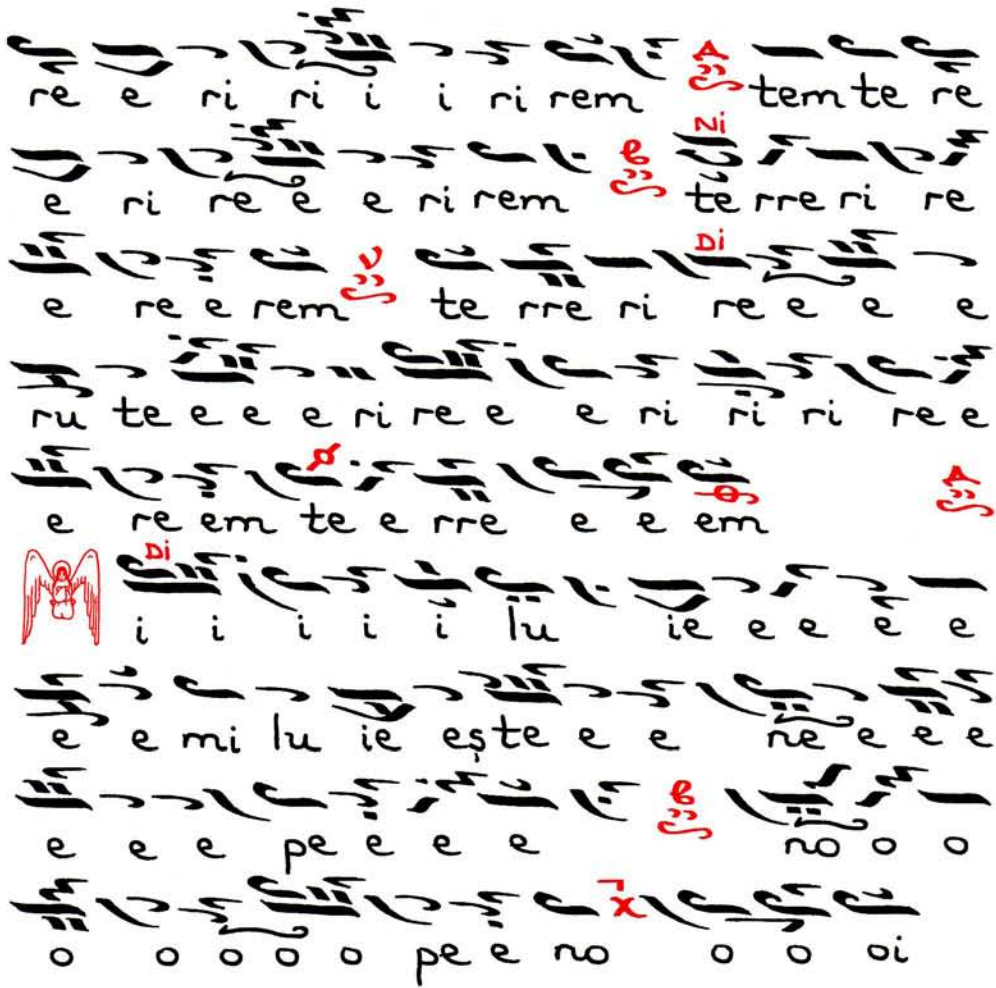 re e ri ri i i ri rem tem te re
Ni
e ri re e e ri rem te rre ri re
Di
e re e rem te rre ri re e e e
ru te e e e ri re e e ri ri ri re e
e re em te e rre e e em
Di
i i i i i lu ie e e e e
e e mi lu ie eș te e e ne e e e
e e e pe e e e no o o
o o o o o pe e no o o oi